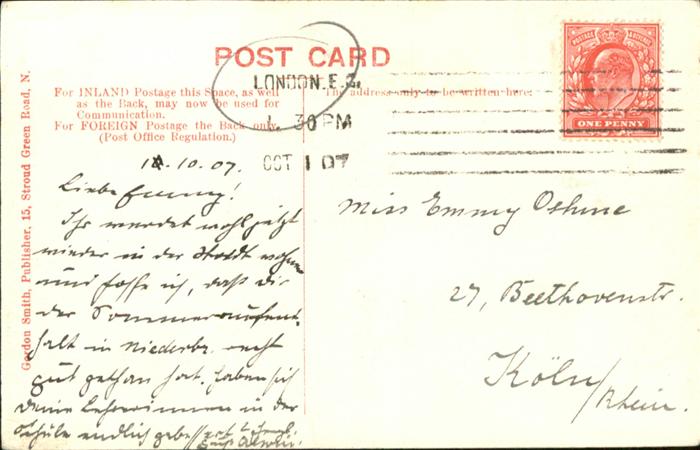 POST CARD
LONDON. E.C.
1 30 PM
OCT 1 07
For INLAND Postage this Space, as well
as the Back, may now be used for
Communication.
For FOREIGN Postage the Back only.
(Post Office Regulation.)
The address only to be written here.
POSTAGE & REVENUE
ONE PENNY
Gordon Smith, Publisher, 15, Stroud Green Road, N.
1.10.07.
Liebe Emmy!
Ihr werdet wohl jetzt
wieder in der Stadt wohnen
und hoffe ich, daß dir
der Sommeraufent-
halt in Niederbr. recht
gut gethan hat. Haben sich
deine Lehrerinnen in der
Schule endlich gebessert
Miss Emmy Oehme
27, Beethovenstr.
Köln/
Rhein.